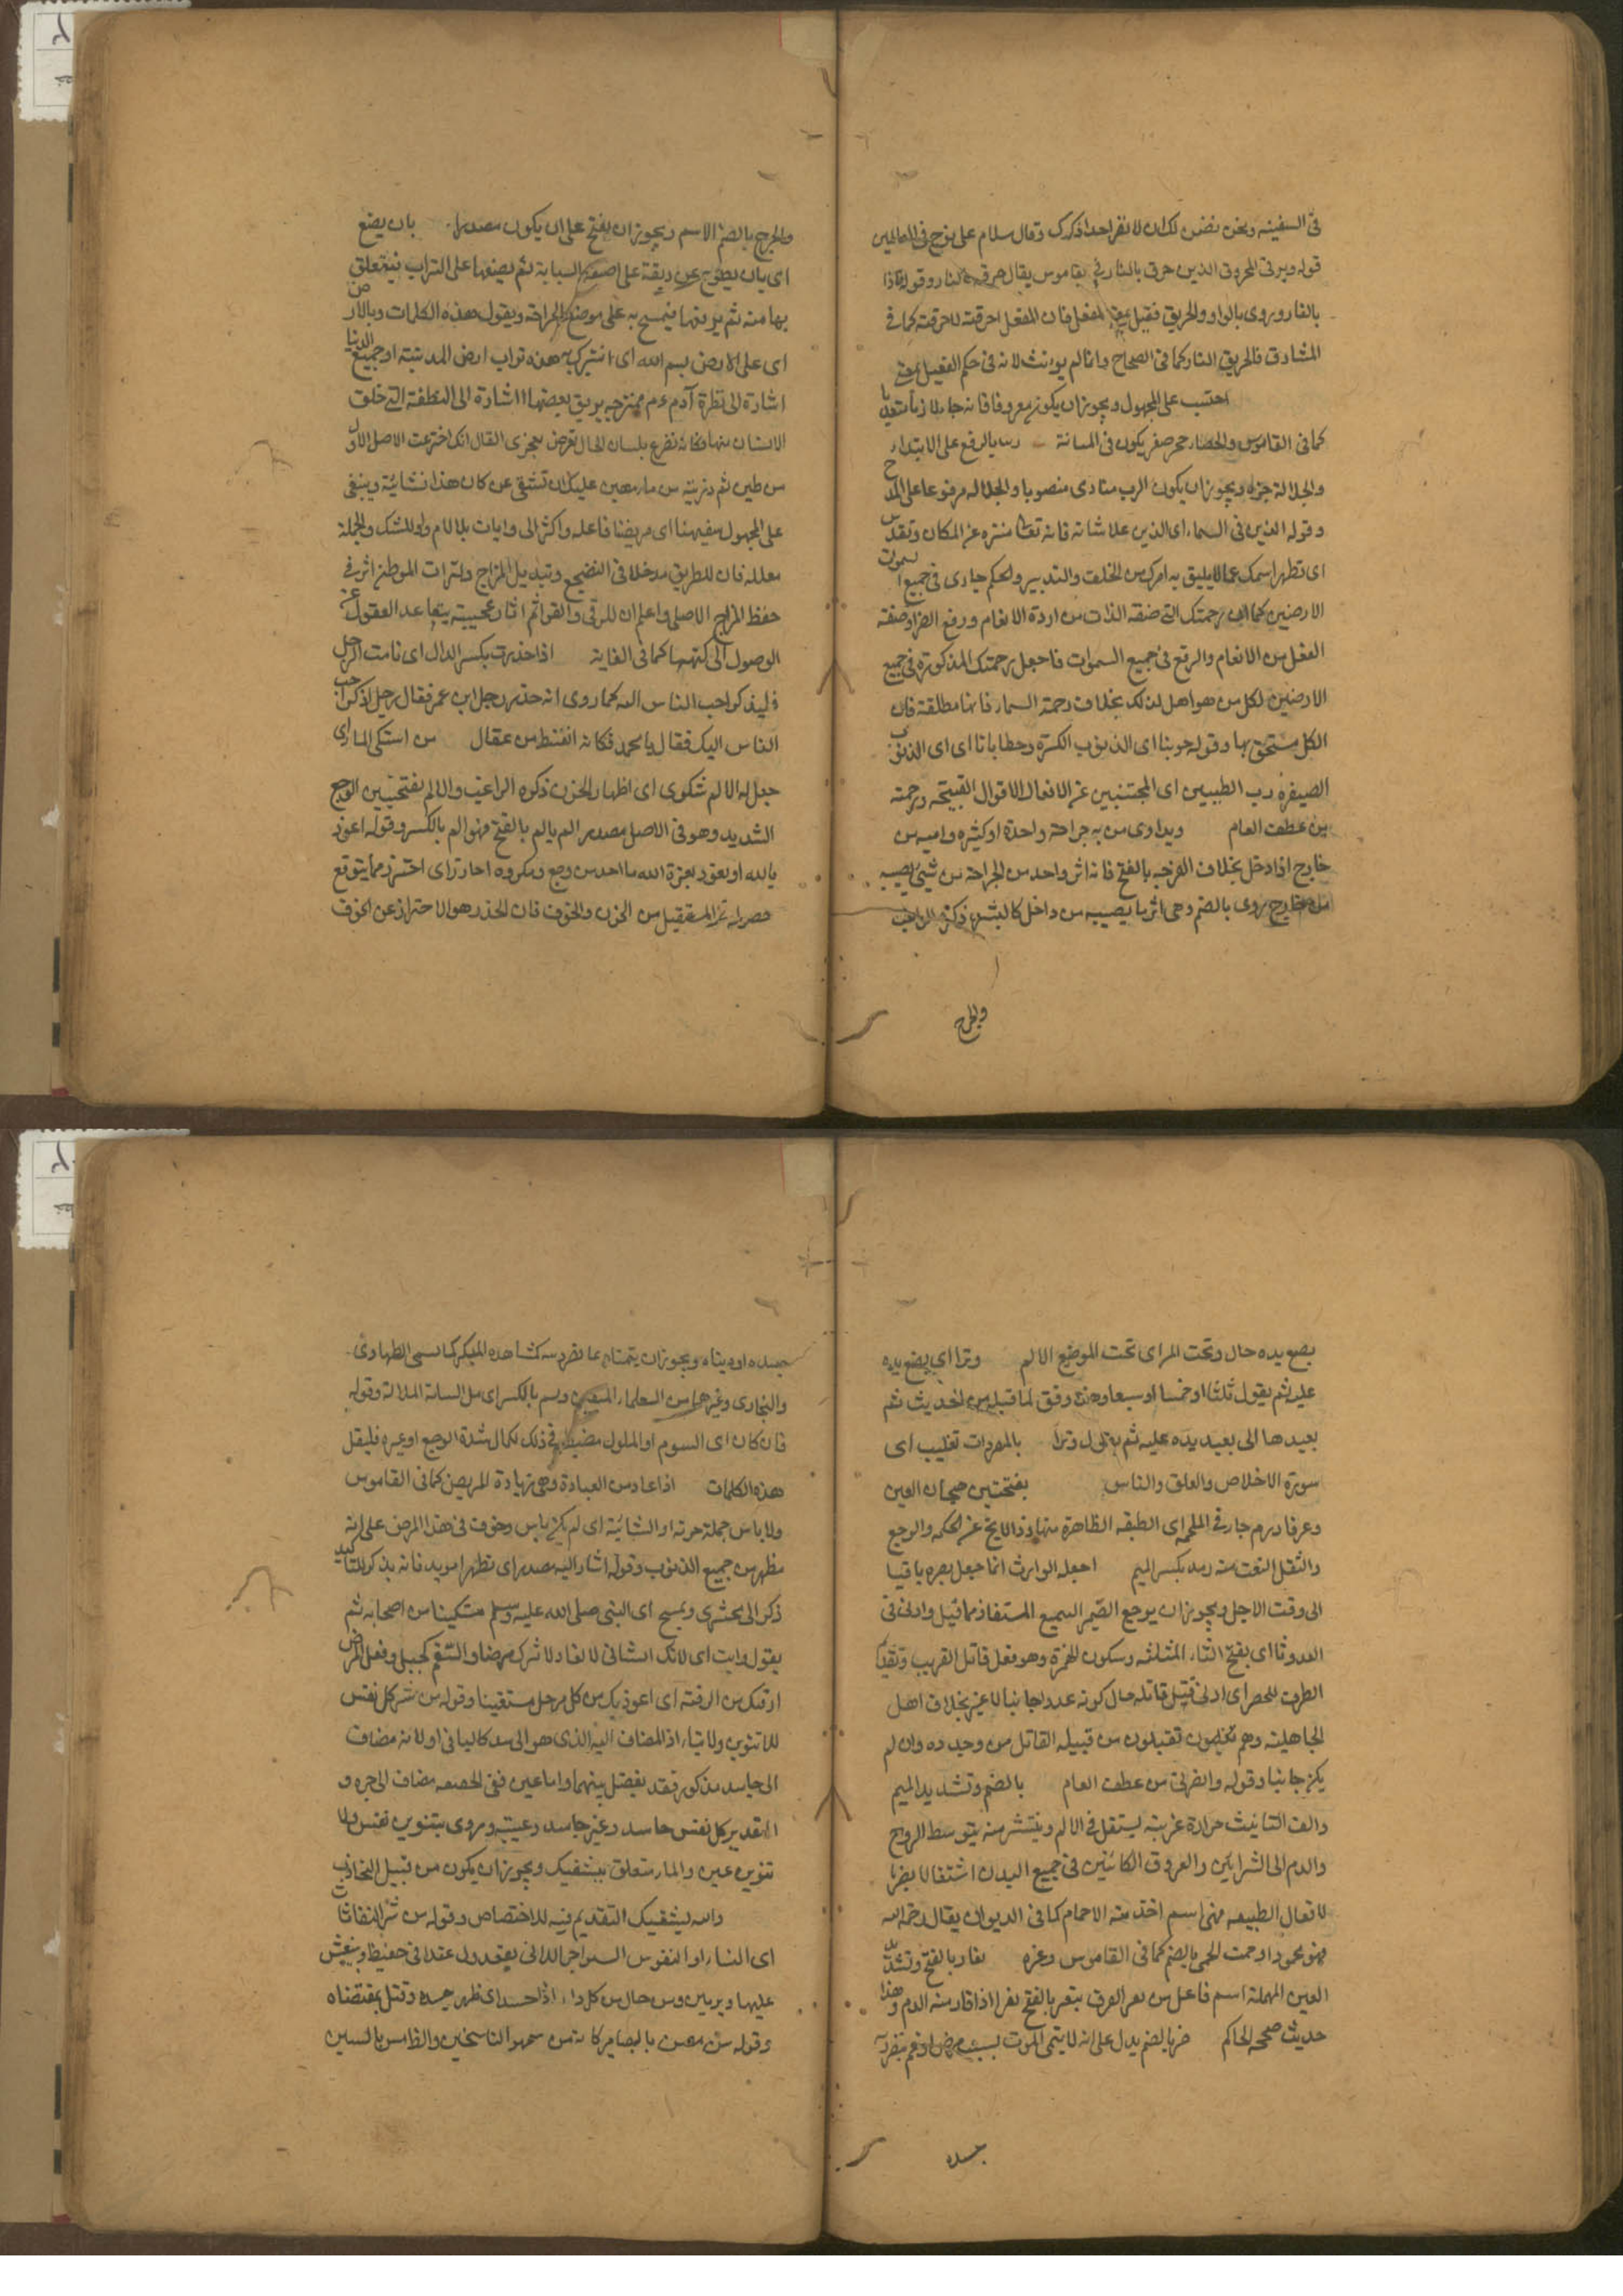 فى السفينه ونحن نضمن لك ان لا نقر احدا ذكرك وقال سلام على نوح فى العالمين
قوله ويرقى المحروق الذين حرق بالنار فى بقاموس يقال حرقه بالنار وقوله فاذا
بالفا ويروى بالواو والحريق فعيل بمعنى المفعل فان المفعل احرقته لا حرقته كما فى
المشارق فالحريق النار كما فى الصحاح وانما لم يونث لانه فى حكم الفعيل بمعنى
احتبس على المجهول ويجوز ان يكون معروفا فانه جاء لازما متعديا
كما فى القاموس والحصاه حجر صغر يكون فى المثانة ربنا بالرفع على الابتداء
والجلالة خبره ويجوز ان يكون الرب منادى منصوبا والجلاله مرفوعا على المدح
وقوله الذين فى السماء اى الذين علا شانه فانه تعالى منزه عن المكان وتقدس
اى تطهر اسمك عما لا يليق به امرك من الخلق والتدبير والحكم جارى فى جميع السموت
الارضين كما ان رحمتك التى صفته الذات من ارادة الانعام ورفع الضر او صفته
الفعل من الانعام والرفع فى جميع السموات فاجعل رحمتك المذكورة فى جميع
الارضين لكل من هو اهل لذلك بخلاف رحمة السماء فانها مطلقة فان
الكل مستحق بها وقوله حوبنا اى الذنوب الكبيرة وخطايانا اى اى الذنوب
الصغيره رب الطيبين اى المجتنبين عن الافعال الاقوال القبيحه ورحمته
من عطف العام ويداوى من به جراحة واحدة او كثيره واميه من
خارج اذا دخل بخلاف القرحه بالفتح فانه اثر واحد من الجراحة من شيئ يصيبه
من خارج يروى بالضم وهى اثر ما يصيبه من داخل كالبثره ذكره الراغب
والجرح
والجرح بالضم الاسم ويجوز ان يفتح على ان يكون مصدرا بان يضع
اى بان يطرح من ريقه على اصبعه السبابة ثم يضعها على التراب فيتعلق
بها منه ثم يرفعها فيمسح به على موضع الجراحة ويقول هذه الكلمات وبالارض
اى على الارض بسم الله اى اتبرك به هذه تراب ارض المدينة او جميع الدنيا
اشارة الى فطرة آدم ءم ممتزجه بريق بعضها اشارة الى النطفة التى خلق
الانسان منها فكانه تضرع بلسان الحال تعرض بمجزى القال انك اخترعت الاصل الاول
من طين ثم ذريته من ماء مهين عليك ان تشفى من كان هذا نشائية ويشفى
على المجهول سقيمنا اى مريضنا فاعله واكثر الى وايات بلا لام واو للشك والجملة
معلله فان للطريق مدخلا فى النضيج وتبديل المزاج ولتراب الموطن اثر فى
حفظ المزاج الاصلى واعلم ان للرقى والقوائم اثار عجيبة يتقاعد العقول عن
الوصول الى كنهها كما فى الغاية اذا خدرت بكسر الدال اى نامت الرجل
فليذكر احب الناس اليه كما روى انه خدر رجل ابن عمر فقال رجل اذكر احب
الناس اليك فقال يا محمد فكانه انتشط من عقال من استكى الما راى
جعل له الالم شكوى اى اظهار الحزن ذكره الراغب والالم بفتحتين الوجع
الشديد وهو فى الاصل مصدر الم يالم بالفتح فهو الم بالكسر وقوله اعوذ
بالله او بعوذ بعزة الله ما احد من وجع ومكروه احاذر اى احترز مما يتوقع
حصوله فى المستقبل من الحزن والخوف فان الحذر هو الاحتراز عن الخوف
بضع يده حال وتحت المراى تحت الموضع الالم وترا اى يضع يده
عليه ثم يقول ثلثا او خمسا او سبعا وهذه وفق لما قبله من الحديث ثم
يعيدها الى بعيد يده عليه ثم يتلى ل وترا بالمعوذات تغليب اى
سورة الاخلاص والعلق والناس بفتحتين هيجان العين
وعرفا ورم حار فى الملحمه اى الطبقه الظاهرة منها
والثقل النعت منه رمد بكسر الميم اجعله الوارث انما جعل بصره باقيا
الى وقت الاجل ويجوز ان يرجع الضمير السميع المستفاد مما قيل وادنى فى
العدو ثا اى بفتح الثاء المثلثه وسكون الهمزة وهو فعل قاتل القريب وتقديم
الظرف للحصر اى ادلى قتيل قاتله حال كونه عدوا جانيا لا غير بخلاف اهل
الجاهلية وهم يظلمون فيقتلون من قبيله القاتل من وجيده وان لم
يكن جانيا وقوله وانصرنى من عطف العام بالضم وتشديد الميم
والف التانيث حرارة غريبة يستقل فى الالم وينتشر منه بتوسط الروح
والدم الى الشرايين والعروق الكائنين فى جميع البدن اشتغالا يضر با
لافعال الطبيعه فهى اسم اخذ منه الاحمام كما فى الديوان يقال حمه الله
فهو محموم او حمت الحمى بالضم كما فى القاموس وغره نعار بالفتح وتشديد
العين المهملة اسم فاعل من نعر العرق ينعر بالفتح نعرا اذا فار منه الدم وهذا
حديث صححه الحاكم ضر بالضم يدل على انه لا يتمنى الموت بسبب مرض او غم يتضرر به
جسده
جسده او دينه ويجوز ان يتمناه عا تضرر به كمشاهده المنكر كما تمنى الطحاوى
والبخارى وغيرهما من العلماء المتقين وسم بالكسر اى مل السامة الملالة وقوله
فان كان اى السوم او الملول مضيعة فى ذلك لكمال شدة الوجع او غيره فليقل
هذه الكلمات اذا عاد من العيادة وهى زيادة المريض كما فى القاموس
ولا باس جملة خبرية او انشائية اى لم يكن باس وخوف فى هذا المرض على انه
مطهر من جميع الذنوب وقوله اشار اليه مصدر اى تطهر امويد فانه يذكر للتاكيد
ذكر الى بعشرى ويمسح اى النبى صلى الله عليه وسلم مسكينا من اصحابه ثم
يقول وايت اى لانك الشافى لا يغادر لا يترك مرضا والسقم كجبل وفعل المرض
ارقيك من الرقيه اى اعوذ بك من كل مرحل مستقينا وقوله من شر كل نفس
للا تنوين ولا يتاء اذ المضاف اليه الذى هو الى سد كاليا فى او لانه مضاف
الى حاسد مذكور فقد يفصل بينهما واما عين ففى الحصمه مضاف الى جره و
التقدير كل نفس حاسد وغير حاسد وعينه ويروى بتنوين نفس ولا
تنوين عين والمار متعلق بيشفيك ويجوز ان يكون من قبيل التحاذب
والله يشفيك التقديم فيه للاختصاص وقوله من شر النفاثات
اى النساء او النفوس السواحر اللاتى يعقدون عقدا فى خيط وينفثن
عليها ويريبن ومن حال من كل داء اذا حسد اى ظهر حسده وقتل بمقتضاه
وقوله شر معين بالبصاير كانه من سهو الناسخين والظامس بالسين